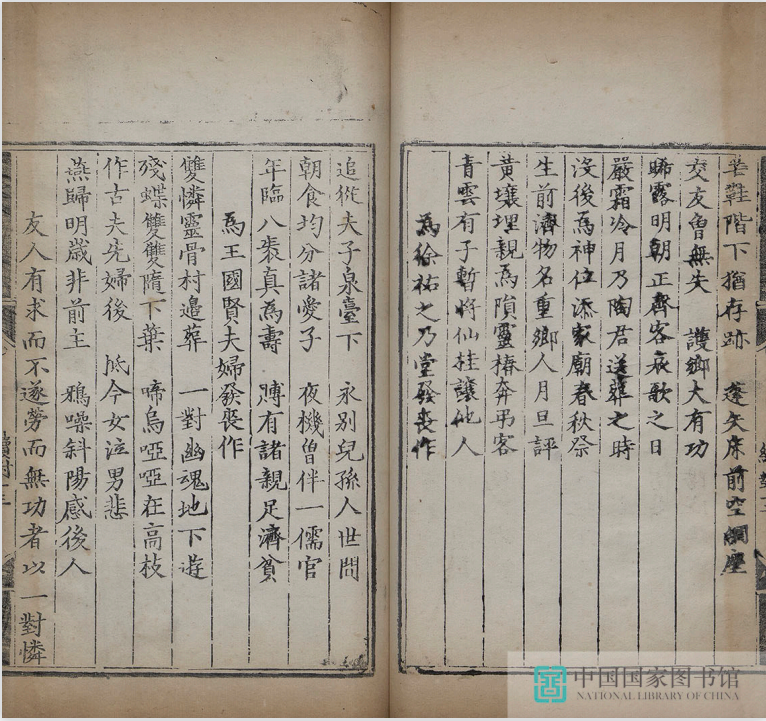 芒鞋階下猶存跡　蓬矢床前空網塵
交友魯無失　護鄉大有功
晞露明朝正齊客哀歌之日
嚴霜冷月乃陶君送葬之時
沒後為神位添家廟春秋祭
生前濟物名重鄉人月旦評
黃壤埋親為隕靈椿奔弔客
青雲有子暫將仙桂讓他人
為徐祐之乃堂發喪作
追從夫子泉臺下　永別兒孫人世間
朝食均分諸愛子　夜機曾伴一儒官
年臨八袠真為壽　賻有諸親足濟貧
為王國賢夫婦發喪作
雙憐靈骨村邊葬　一對幽魂地下遊
殘蝶雙雙隋下葉　啼烏啞啞在高枝
作古夫先婦後　於今女泣男悲
燕歸明歲非前主　鴉噪斜陽感後人
友人有求而不遂勞而無功者以一對憐
續對三
中国国家图书馆
NATIONAL LIBRARY OF CHINA